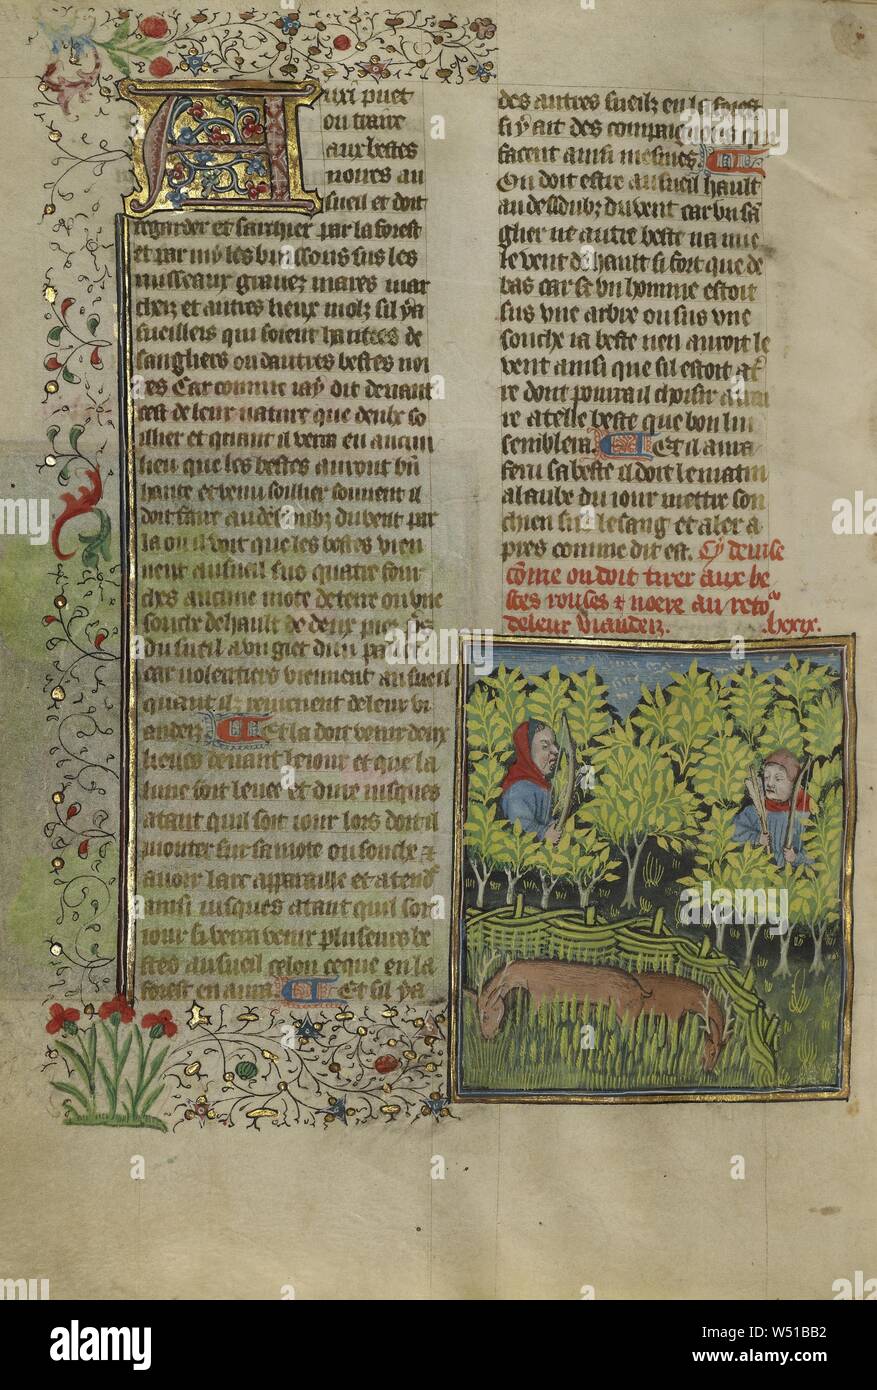 Auxi puet
on traire
aux bestes
noires au
sueil et doit
regarder et serchier par la forest
et par my les buissons sus les
ruisseaux gravez mares mar
chez et autres lieux molz sil y a
sueilleis qui soient hantees de
sangliers ou dautres bestes noi
res Car comme iay dit devant
cest de leur nature que deulx so
illier et quant il verra en aucun
lieu que les bestes auront
hante et venu soillier souvent il
doit faire au dessoubz du vent par
la ou il voit que les bestes vien
nent au sueil ou quatre four
ches aucune mote de terre ou une
souche de hault de deux piez
du sueil a un giet dun
car volentiers viennent au sueil
quant ilz reviennent de leur vi
andez Et la doit venir deux
lieues devant le iour et que la
lune soit levee et dire iusques
atant quil soit iour lors doit il
monter sur sa mote ou souche et
avoir larc appareille et atend
ainsi iusques atant quil soit
iour si verra venir pluseurs be
stes au sueil selon ce que en la
forest en aura Et sil y a
des autres sueilz en la forest
si y ait des compaignons qui
facent ainsi mesmes
On doit estre au sueil hault
au dessoubz du vent car un san
glier ne autre beste na mie
le vent de hault si fort que de
bas car se un homme estoit
sus une arbre ou sus une
souche ia beste nen auroit le
vent ainsi que sil estoit a ter
re dont pourra il choisir a
re a telle beste que bon lui
semblera Et il aura
feru sa beste il doit le matin
a laube du iour mettre son
chien sur le sang et aler a
pres comme dit est. Cy devise
comme on doit tirer aux be
stes rouses et noire au reto
de leur viandez. lxxix.
alamy
Image ID: W51BB2
www.alamy.com